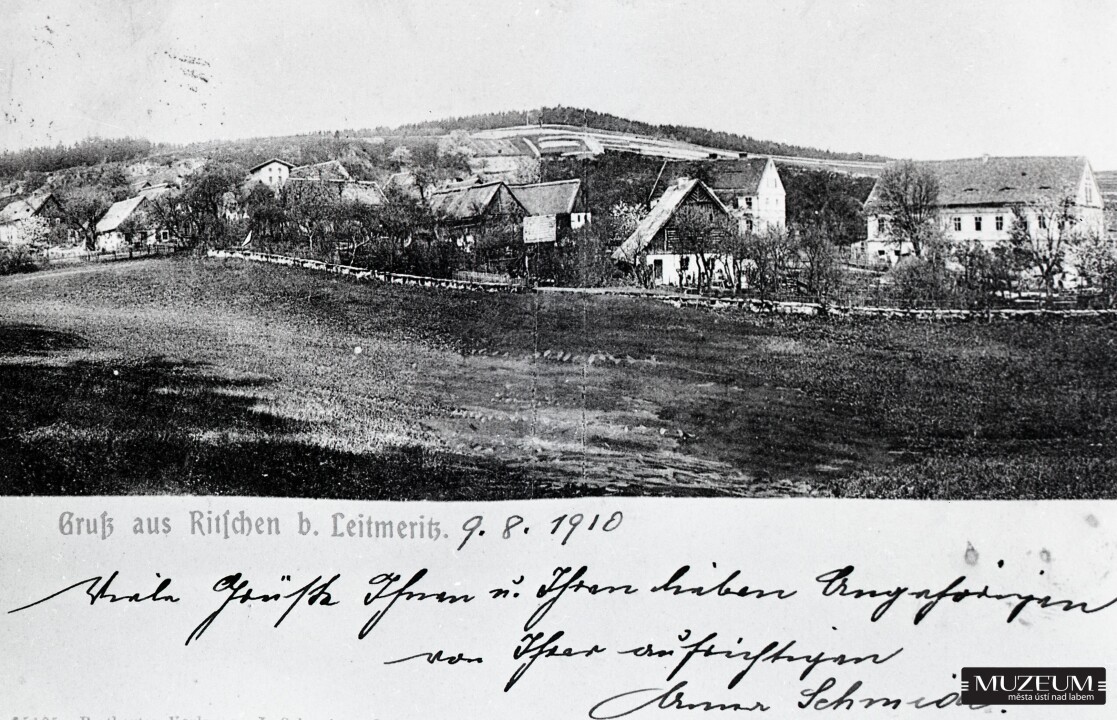 Gruß aus Ritschen b. Leitmeritz. 9. 8. 1910
Viele Grüße Ihnen u. Ihren lieben Angehörigen
von Ihrer aufrichtigen
Anna Schmidt.
MUZEUM
města ústí nad labem